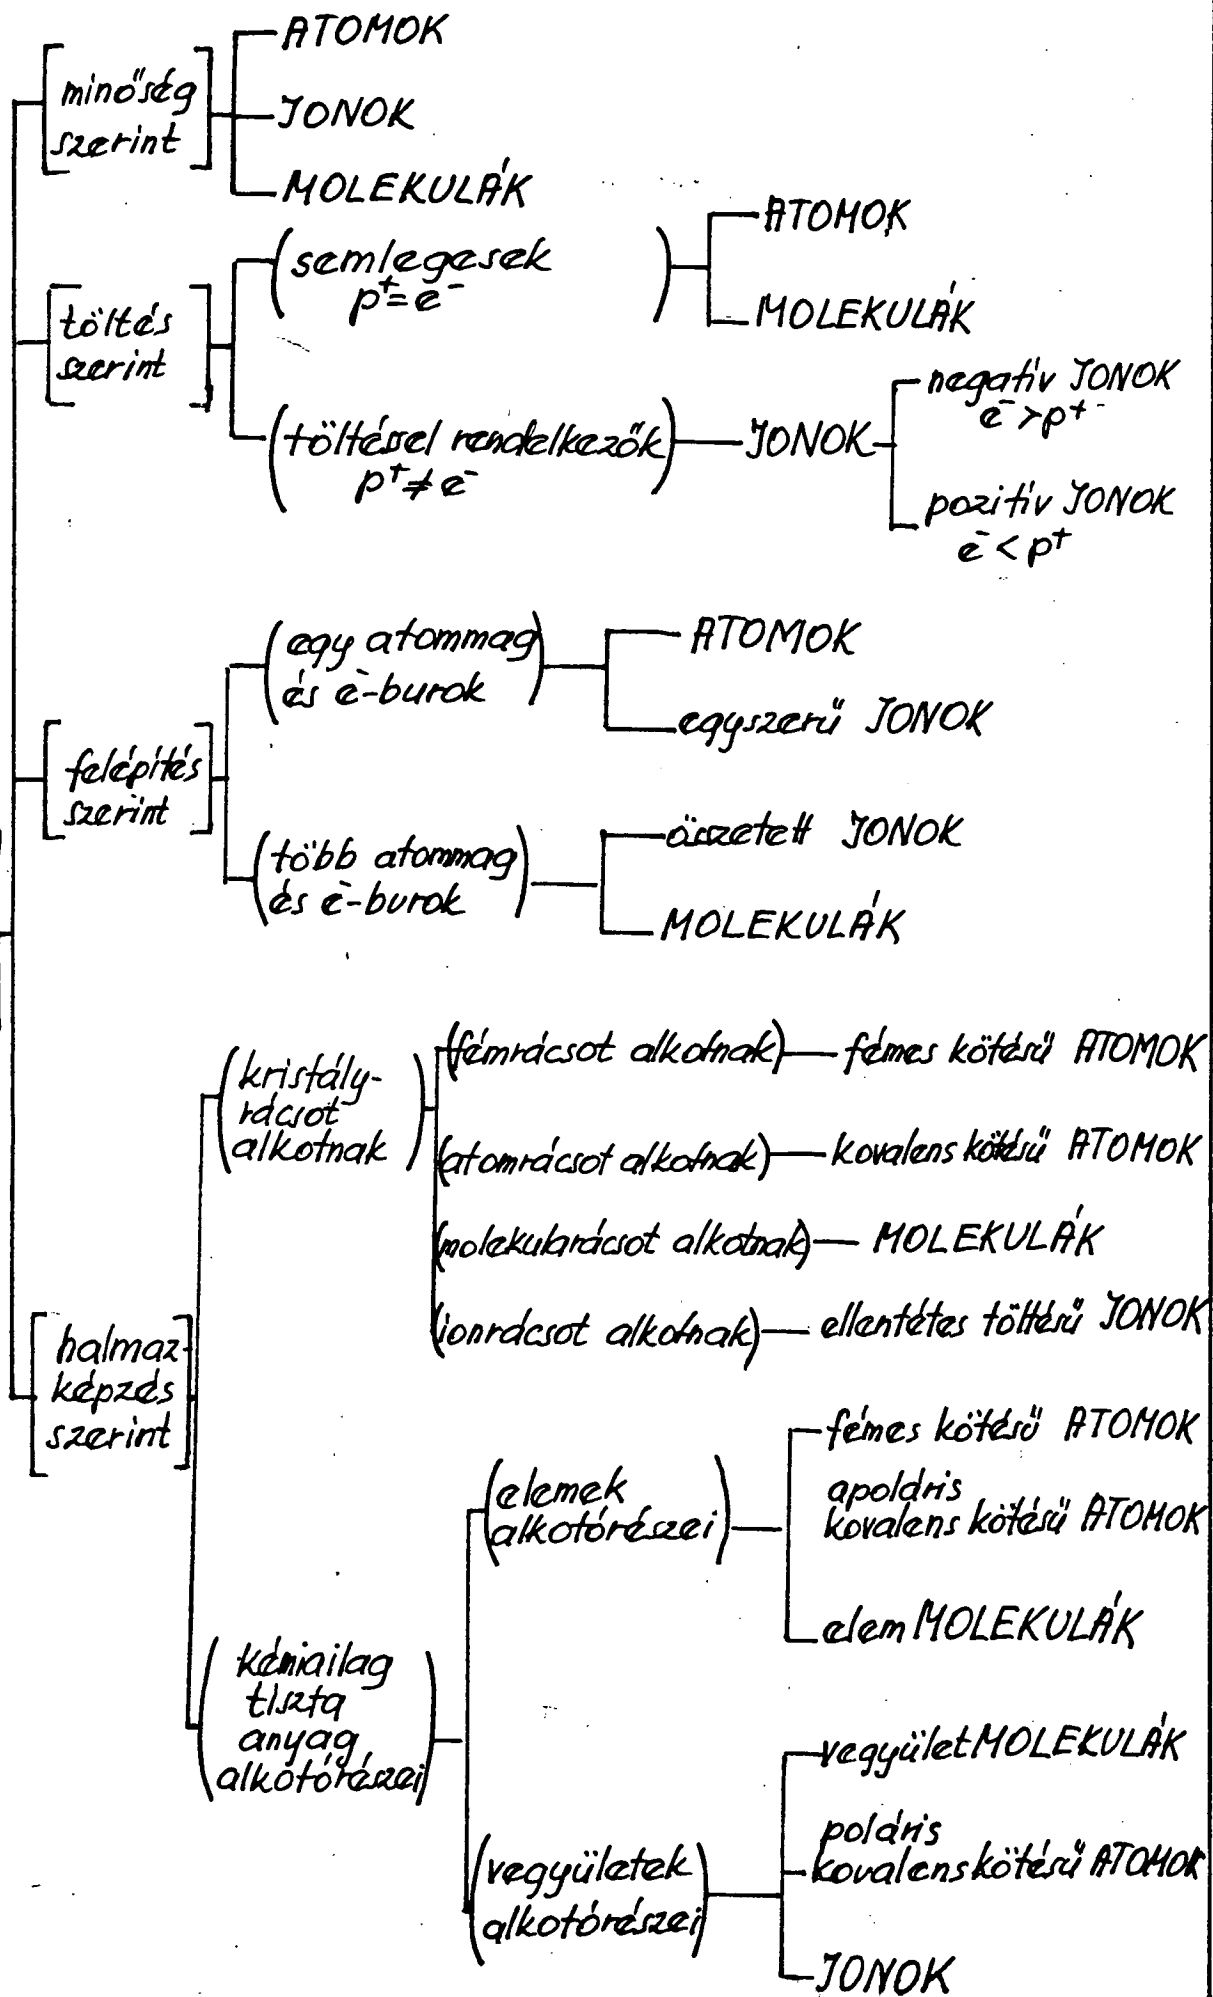 ATOMOK
minőség
szerint
JONOK
MOLEKULÁK
töltés
szerint
semlegesek
p⁺=e⁻
ATOMOK
MOLEKULÁK
töltéssel rendelkezők
p⁺≠e⁻
JONOK
negatív JONOK
e⁻>p⁺
pozitív JONOK
e⁻<p⁺
felépítés
szerint
egy atommag
és e⁻-burok
ATOMOK
egyszerű JONOK
több atommag
és e⁻-burok
összetett JONOK
MOLEKULÁK
halmaz-
képzés
szerint
kristály-
rácsot
alkotnak
(fémrácsot alkotnak)
fémes kötésű ATOMOK
(atomrácsot alkotnak)
kovalens kötésű ATOMOK
(molekularácsot alkotnak)
MOLEKULÁK
(ionrácsot alkotnak)
ellentétes töltésű JONOK
kémiailag
tiszta
anyag
alkotórészei
elemek
alkotórészei
fémes kötésű ATOMOK
apoláris
kovalens kötésű ATOMOK
elem MOLEKULÁK
vegyületek
alkotórészei
vegyületMOLEKULÁK
poláris
kovalens kötésű ATOMOK
JONOK